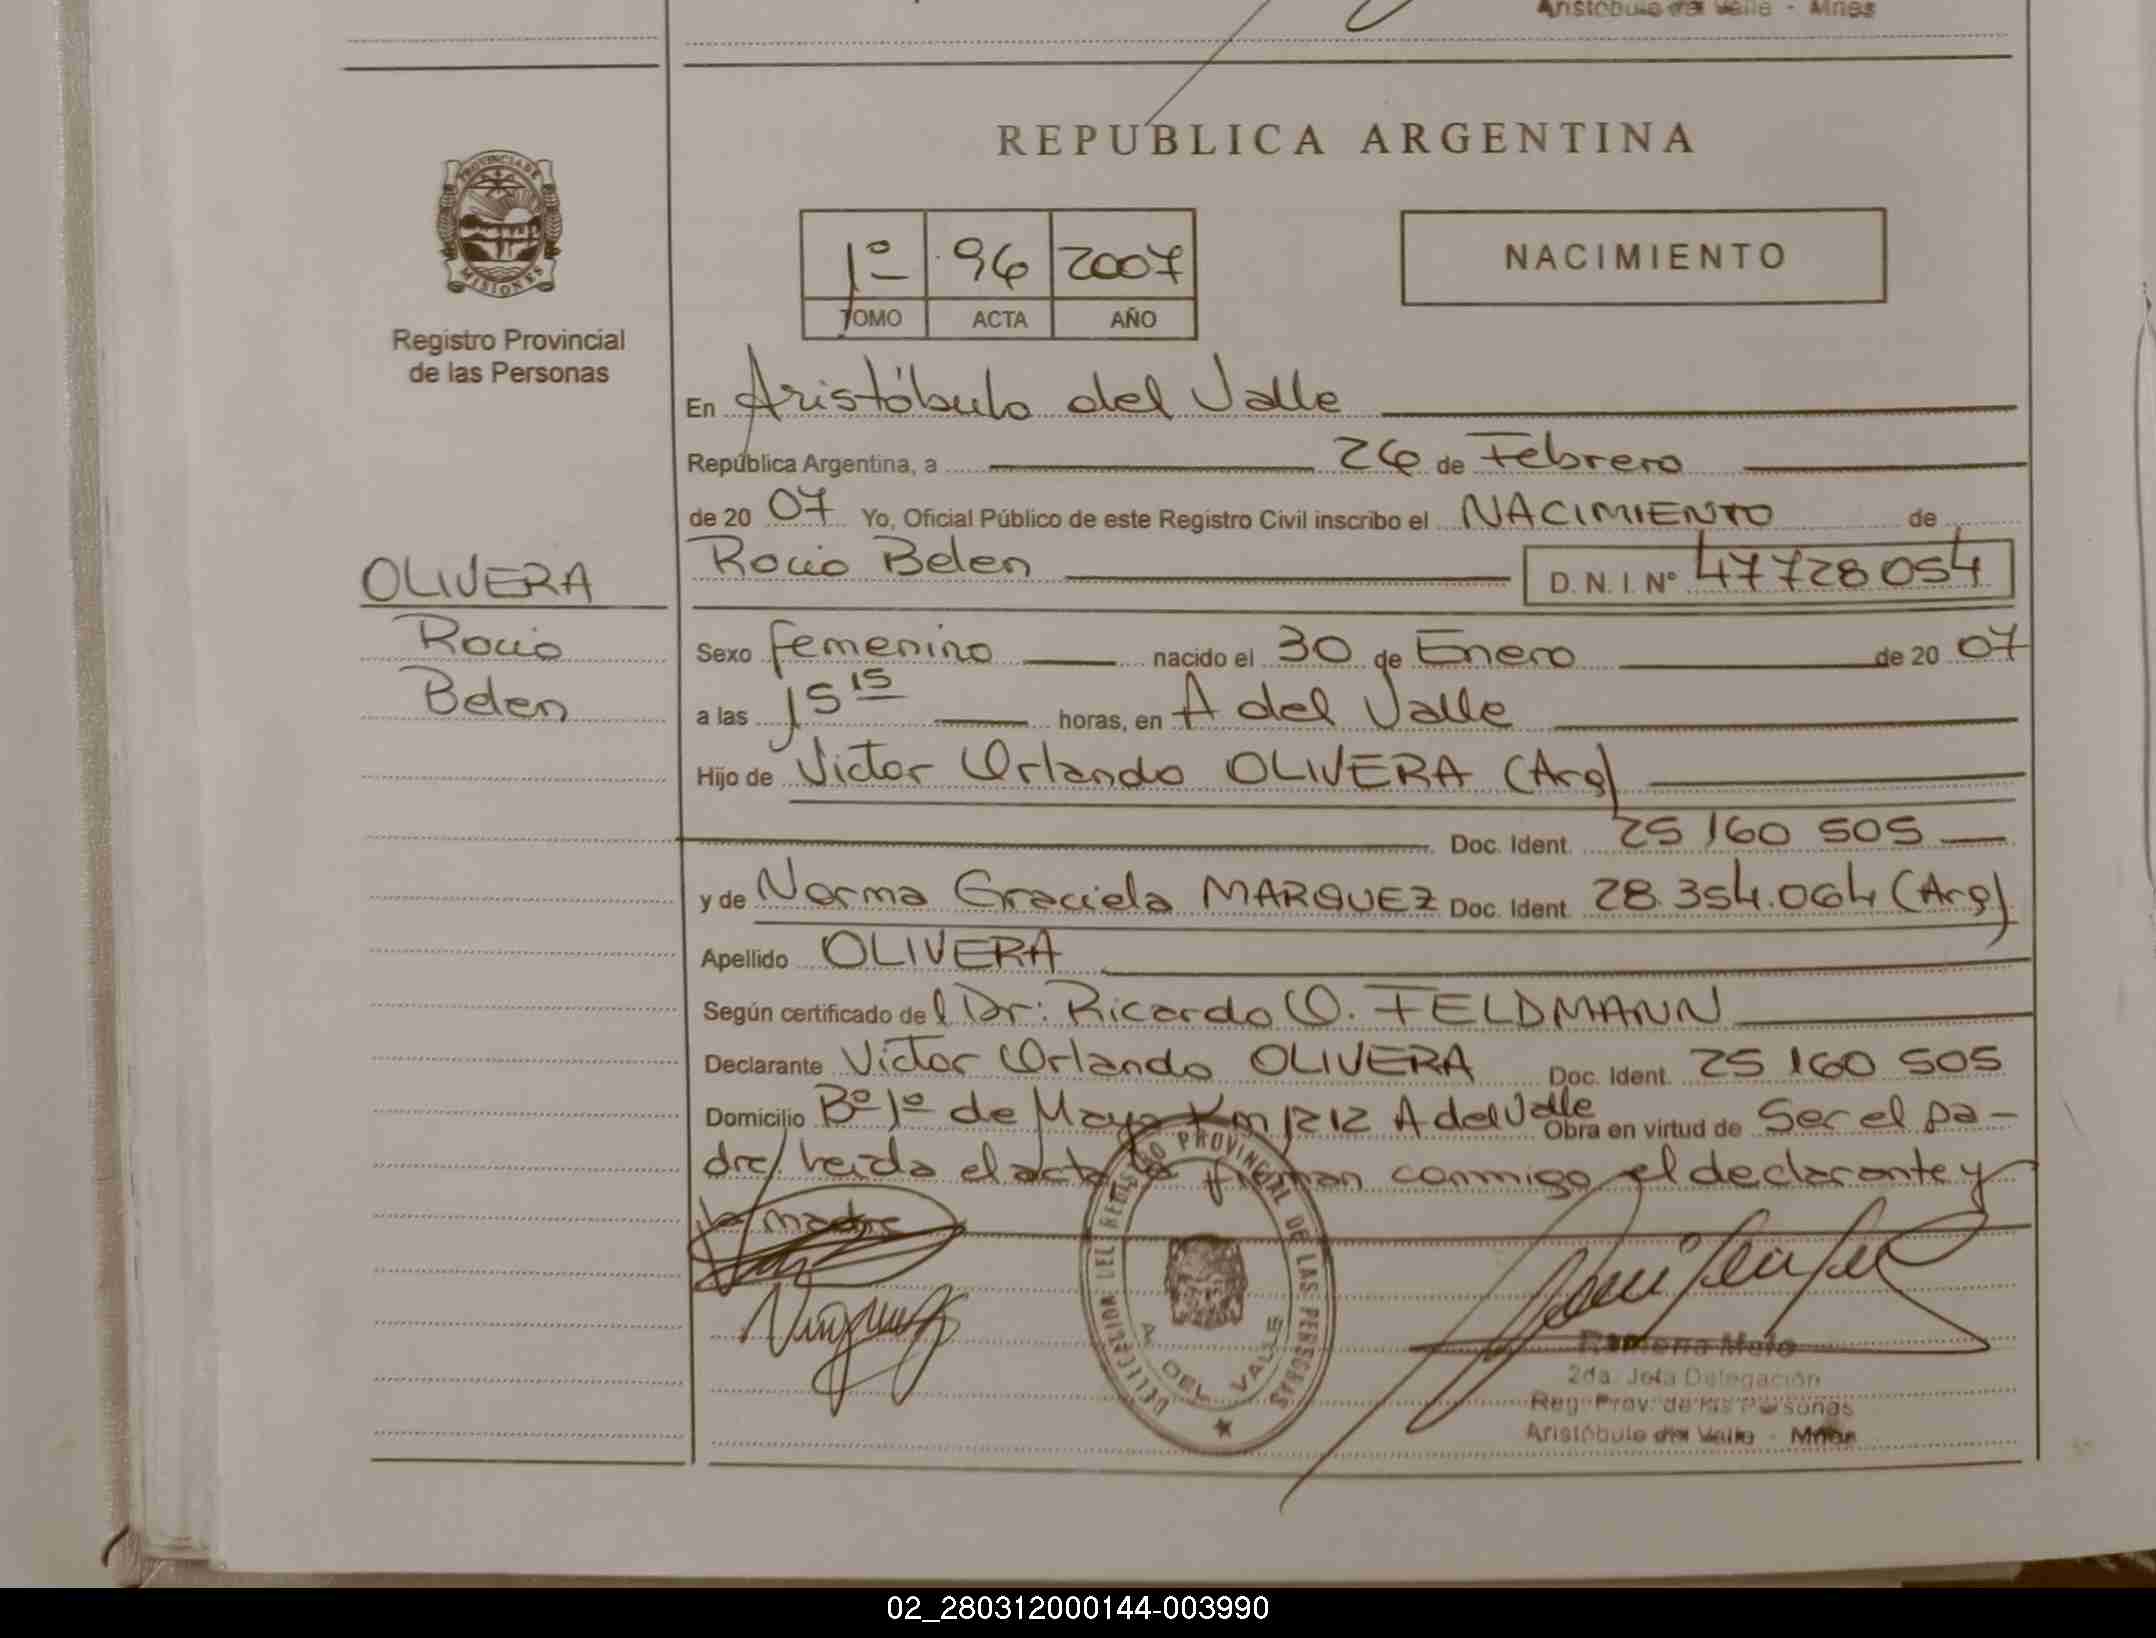 Aristóbulo del Valle - Mnes
REPUBLICA ARGENTINA
PROVINCIA DE
MISIONES
Registro Provincial
de las Personas
1º 96 2007
TOMO ACTA AÑO
NACIMIENTO
En Aristóbulo del Valle
República Argentina, a 26 de Febrero
de 20 07 Yo, Oficial Público de este Registro Civil inscribo el NACIMIENTO de
OLIVERA
Rocio
Belen
Rocio Belen D.N.I. Nº 47728054
Sexo femenino nacido el 30 de Enero de 20 07
a las 15 15 horas, en A del Valle
Hijo de Victor Orlando OLIVERA (Arg)
Doc. Ident. 25 160 505
y de Norma Graciela MARQUEZ Doc. Ident. 28.354.064 (Arg)
Apellido OLIVERA
Según certificado del Dr: Ricardo O. FELDMANN
Declarante Victor Orlando OLIVERA Doc. Ident. 25 160 505
Domicilio Bº 1º de Mayo Km 1212 A del Valle Obra en virtud de Ser el pa-
dre/ leida el acta la firman conmigo el declarante y
la madre
REGISTRO PROVINCIAL DE LAS PERSONAS
A. DEL VALLE
Ramona Melo
2da. Jefa Delegación
Reg. Prov. de las Personas
Aristóbulo del Valle - Mnes
02_280312000144-003990